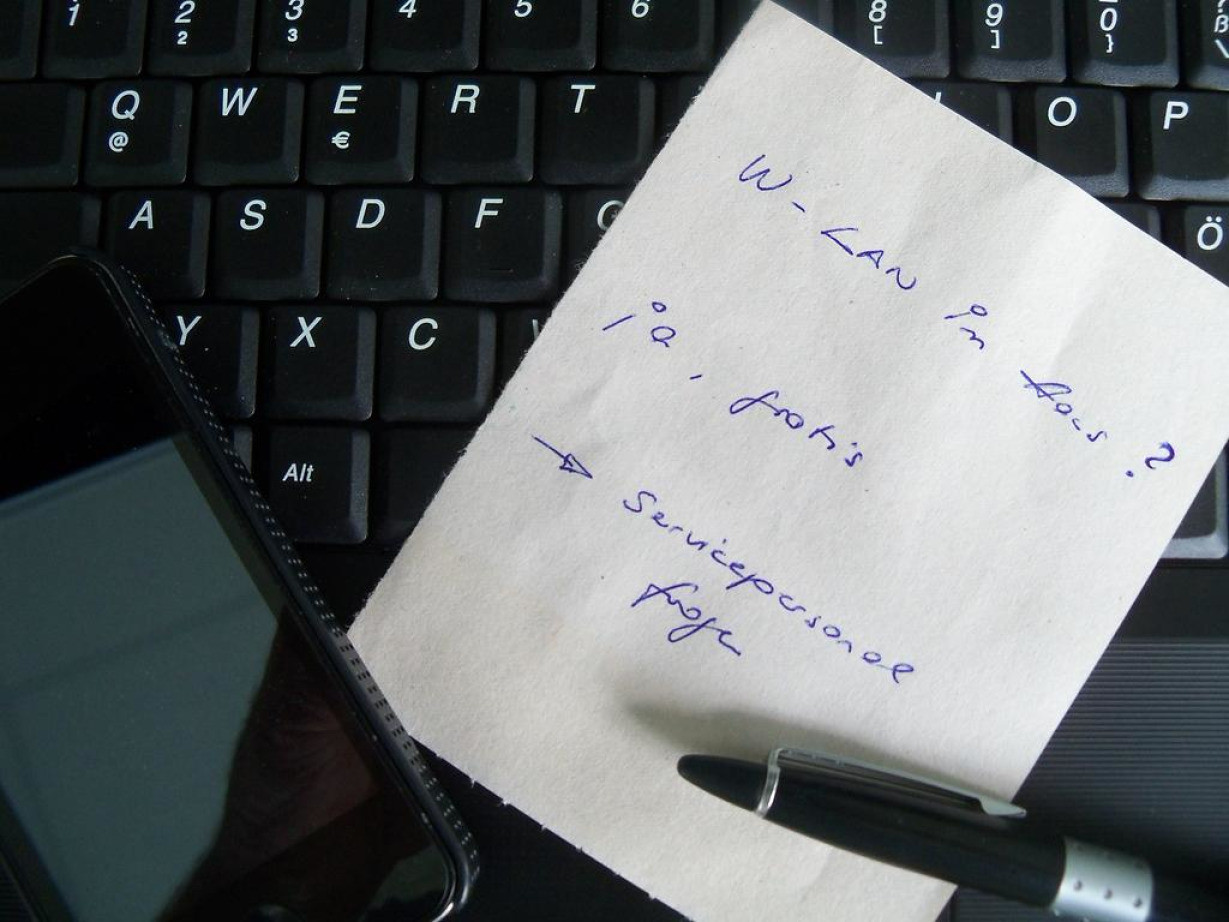 1 2 3 4 5 6 8 9 0 ß
2 3 [ ] } \
Q W E R T O P
@ €
A S D F Ö
Y X C
Alt
W-LAN in Haus?
ja, gratis
→ Servicepersonal
fragen